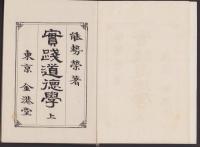 能勢榮著
實踐道德學 上
東京 金港堂